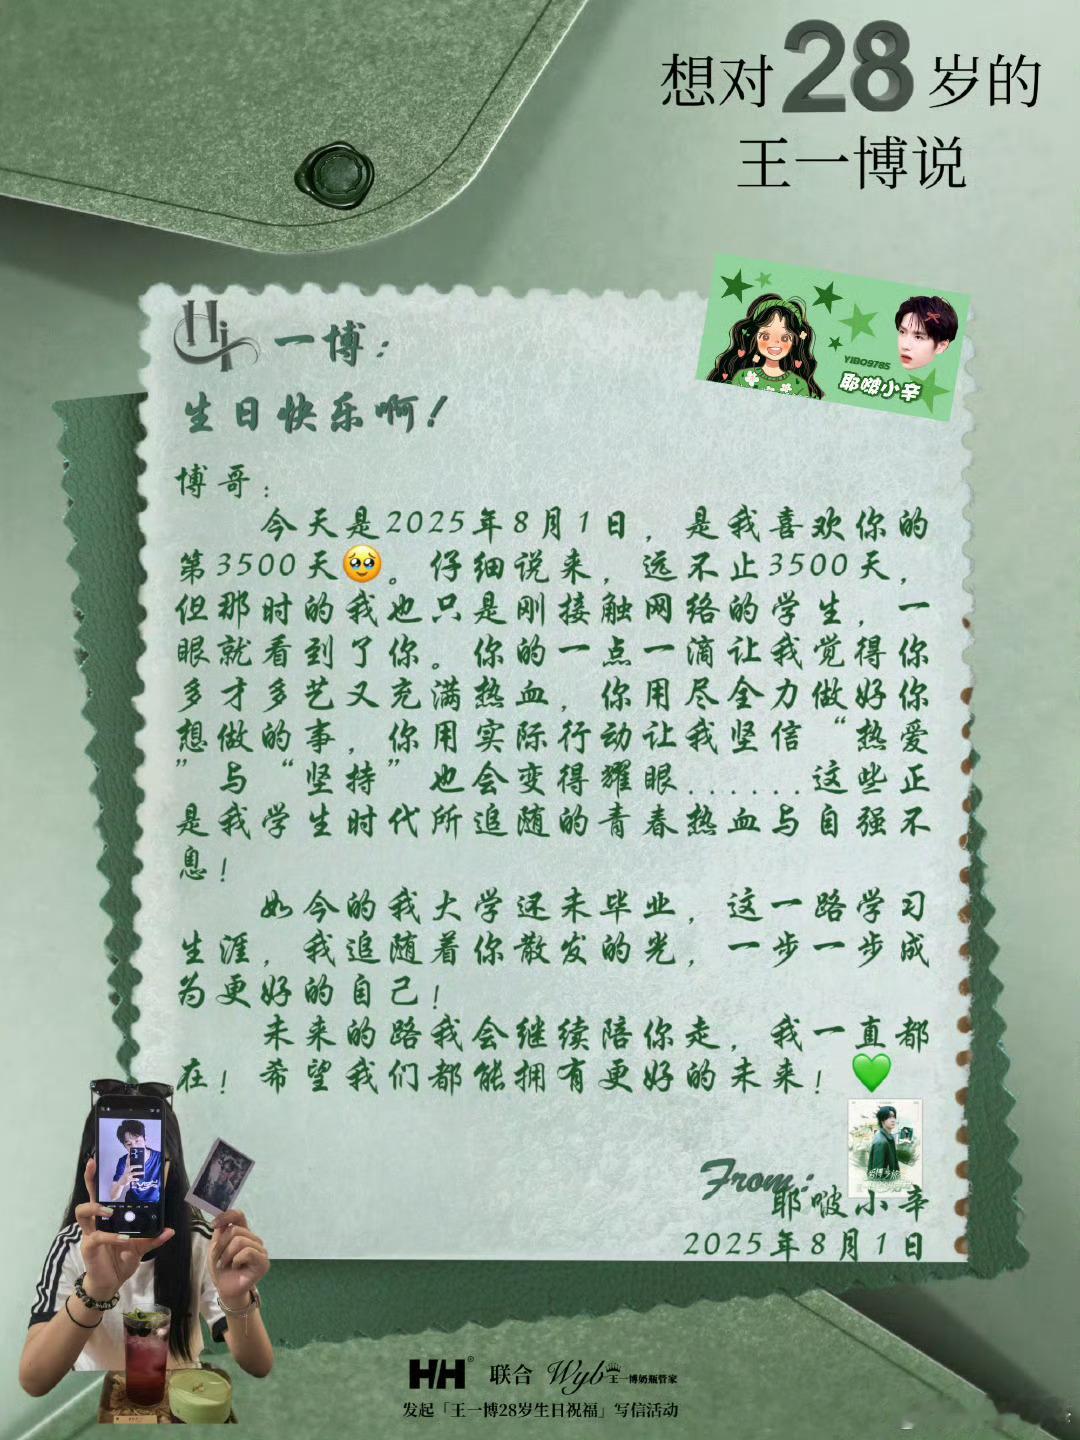 想对28岁的
王一博说
Hi 一博：
生日快乐啊！
YIBO9785
耶啵小辛
博哥：
今天是2025年8月1日，是我喜欢你的
第3500天🥹。仔细说来，远不止3500天，
但那时的我也只是刚接触网络的学生，一
眼就看到了你。你的一点一滴让我觉得你
多才多艺又充满热血，你用尽全力做好你
想做的事，你用实际行动让我坚信“热爱
”与“坚持”也会变得耀眼......这些正
是我学生时代所追随的青春热血与自强不
息！
如今的我大学还未毕业，这一路学习
生涯，我追随着你散发的光，一步一步成
为更好的自己！
未来的路我会继续陪你走，我一直都
在！希望我们都能拥有更好的未来！💚
From:
耶啵小辛
2025年8月1日
HH® 联合 Wyb王一博奶瓶管家
发起「王一博28岁生日祝福」写信活动